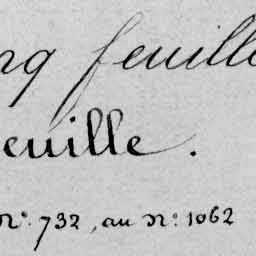 nq feuille
euille.
N°. 732, au N°. 1062